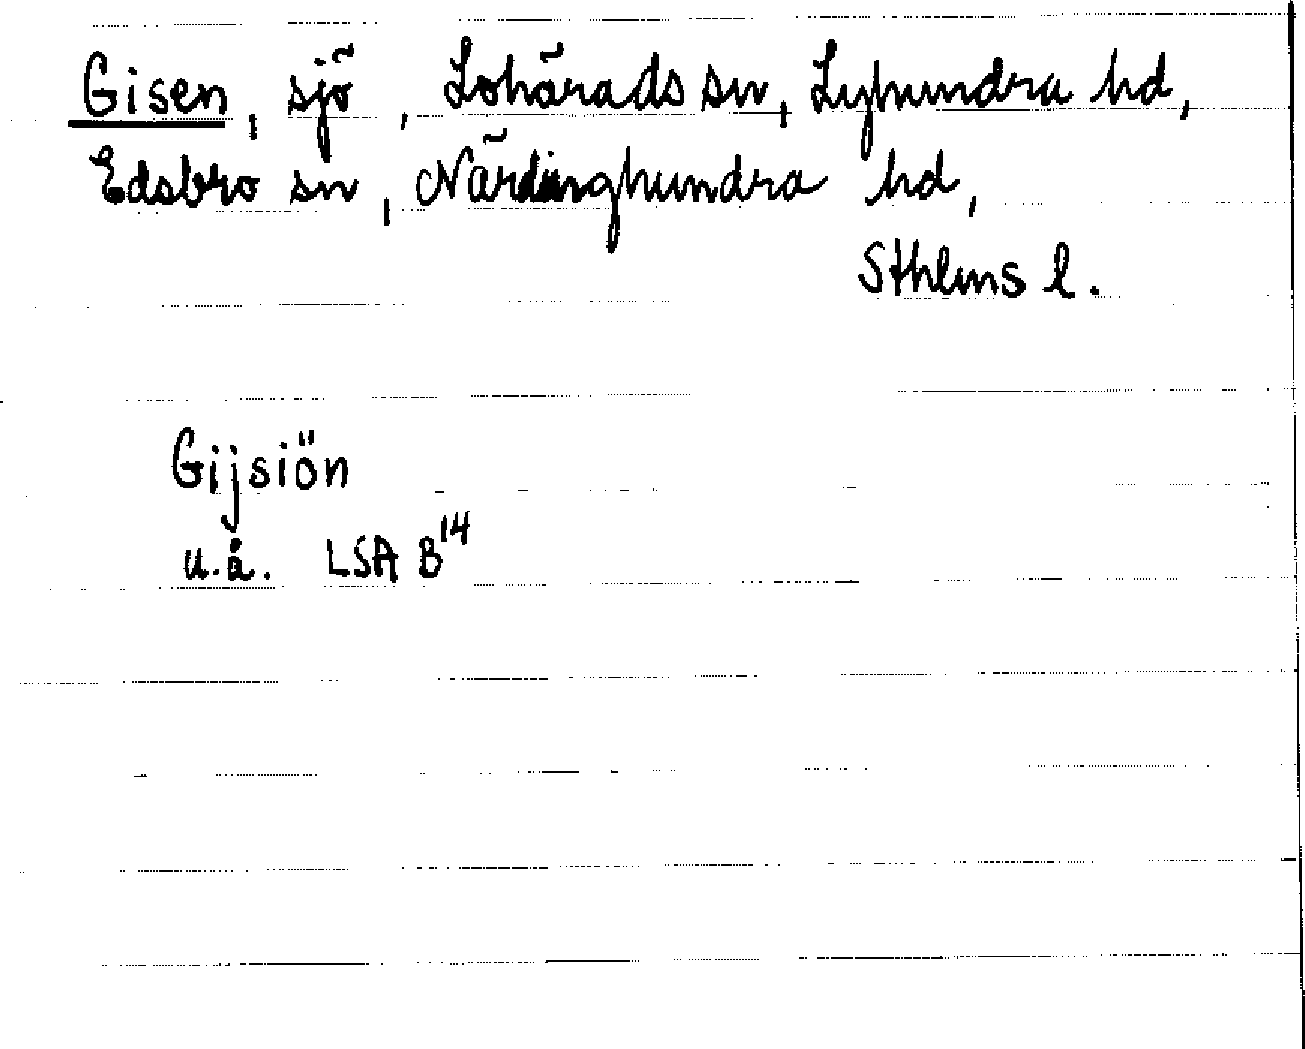 Gisen, sjö, Lohärads sn, Lyhundra hd,
Edsbro sn, Närdinghundra hd,
Sthlms l.
Gijsiön
u.å. LSA B¹⁴